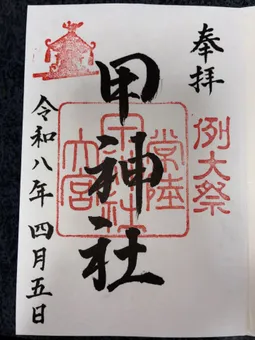 奉拝
例大祭
甲神社
常陸
大宮
甲神社
令和八年四月五日